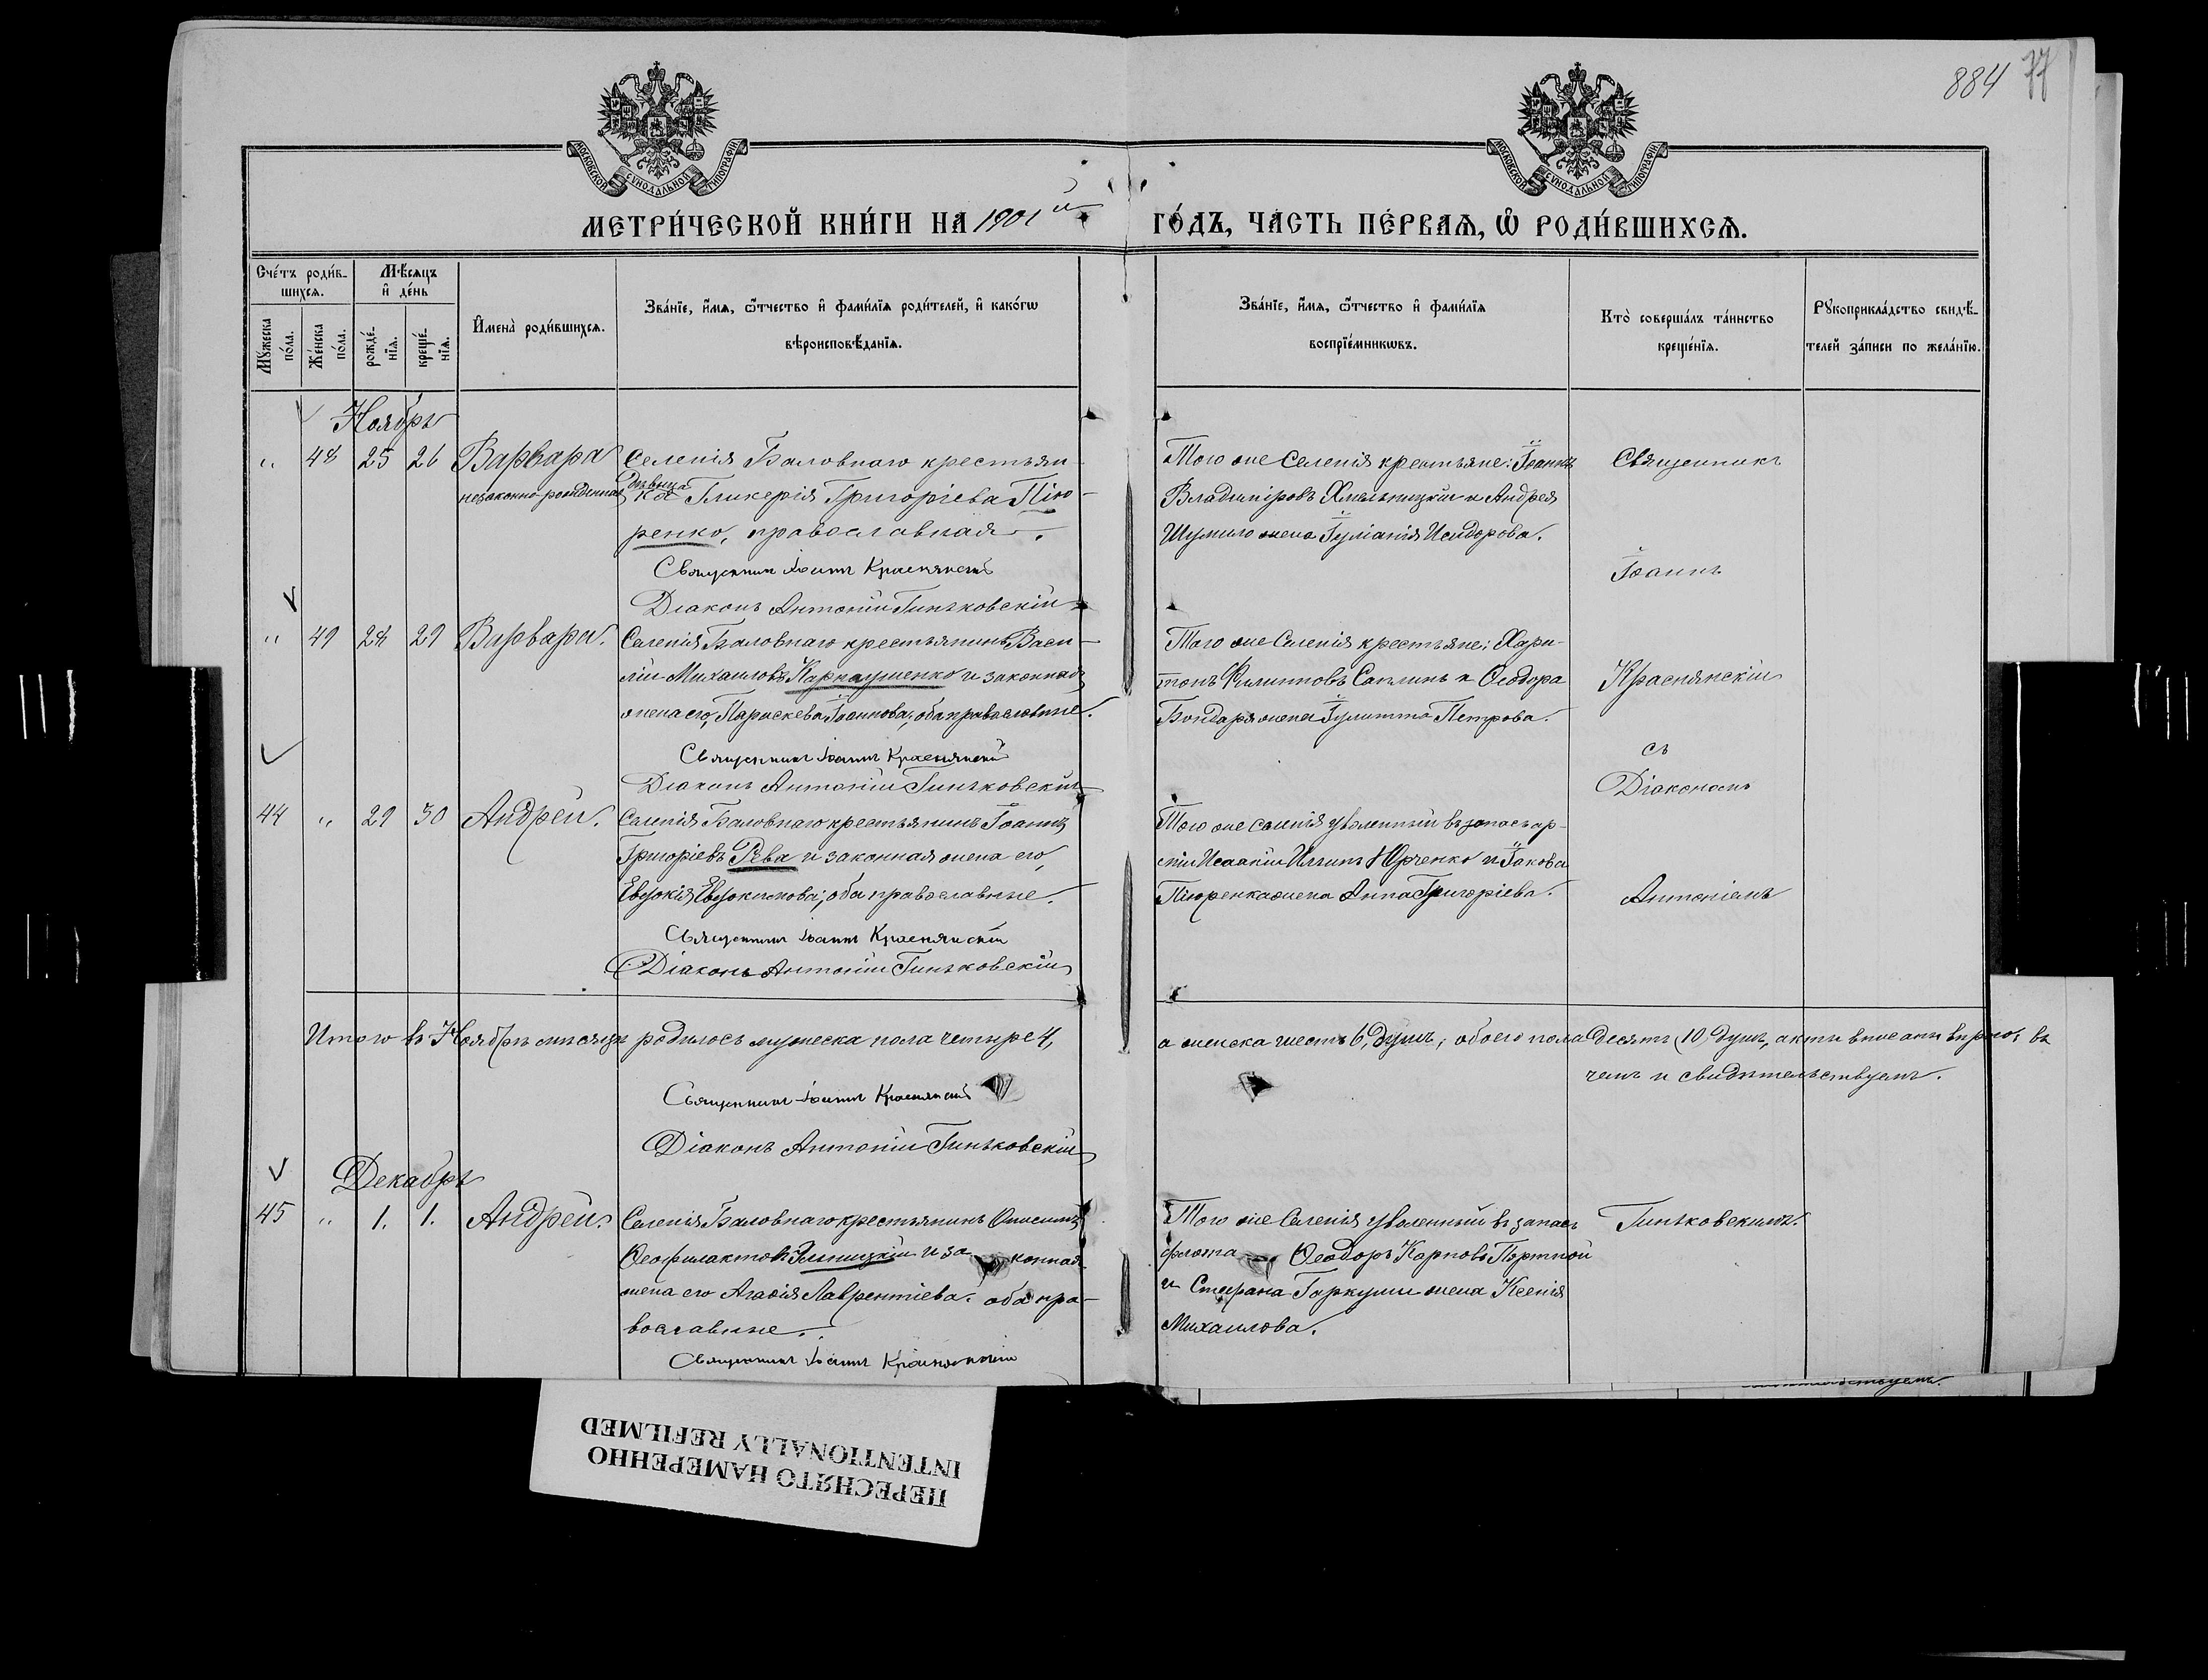 884 77
МОСКОВСКОЙ СѴНОДАЛЬНОЙ ТИПОГРАФІИ
МОСКОВСКОЙ СѴНОДАЛЬНОЙ ТИПОГРАФІИ
МЕТРИ́ЧЕСКОЙ КНИ́ГИ НА 1901й ГО́ДЪ, ЧА́СТЬ ПЕ́РВАѦ, Ѡ РОДИ́ВШИХСѦ.
Сче́тъ роди́в-
шихсѧ.
Мꙋ́жеска по́ла.
Же́нска по́ла.
Мѣ́сѧцъ и҆ де́нь
рожде́-
нїѧ.
креще́-
нїѧ.
И҆мена̀ роди́вшихсѧ.
Зва́нїе, и҆́мѧ, ѻ҆́тчество и҆ фами́лїѧ роди́телей, и҆ како́гѡ
вѣроисповѣ́данїѧ.
Зва́нїе, и҆́мѧ, ѻ҆́тчество и҆ фами́лїѧ
воспрїе́мникѡвъ.
Кто̀ соверша́лъ та́инство
креще́нїѧ.
Рꙋкоприкла́дство свидѣ́-
телей за́писи по жела́нїю.
Ноябрь
" 48 25 26 Варвара
незаконно-рожденная
Селенія Баловнаго крестьян-
дѣвица
ка Гликерія Григоріева Пію-
ренко, православная.
Священникъ Іоаннъ Краснянскій
Діаконъ Антоній Гиньковскій
Того же Селенія крестьяне: Іоаннъ
Владиміровъ Хмельницкій и Андрея
Шумило жена Іуліанія Исидорова.
Священникъ
Іоаннъ
" 49 28 29 Варвара.
Селенія Баловнаго крестьянинъ Васи-
лій Михаиловъ Карпаушенко и законная
жена его, Параскева Іоаннова; оба православные.
Священникъ Іоаннъ Краснянскій
Діаконъ Антоній Гиньковскій
Того же Селенія крестьяне: Хари-
тонъ Филипповъ Саплинъ и Ѳеодора
Бондаря жена Іулитта Петрова.
Краснянскій
съ
Діакономъ
44 " 29 30 Андрей.
Селенія Баловнаго крестьянинъ Іоаннъ
Григоріевъ Рева и законная жена его,
Евдокія Евдокимова; оба православные.
Священникъ Іоаннъ Краснянскій
Діаконъ Антоній Гиньковскій
Того же селенія уволенный въ запасъ ар-
міи Исаакій Юрченко и Іакова
Піюренка жена Анна Григоріева.
Антоніемъ
Итого въ Ноябрѣ мѣсяцѣ родилось мужеска пола четыре 4, а женска шесть 6, душъ, обоего пола десять (10) душъ, акты вписаны вѣрно, въ
чемъ и свидѣтельствуемъ.
Священникъ Іоаннъ Краснянскій
Діаконъ Антоній Гиньковскій
Декабрь
45 " 1. 1. Андрей.
Селенія Баловнаго крестьянинъ Онисимъ
Ѳеофилактовъ и законная
жена его Агаѳія Лаврентіева. оба пра-
вославные.
Священникъ Іоаннъ Краснянскій
Того же Селенія уволенный въ запасъ
флота Ѳеодоръ Карповъ Портной
и Стефана Гаркуши жена Ксенія
Михаилова.
Гиньковскимъ.
ПЕРЕСНЯТО НАМЕРЕННО
INTENTIONALLY REFILMED